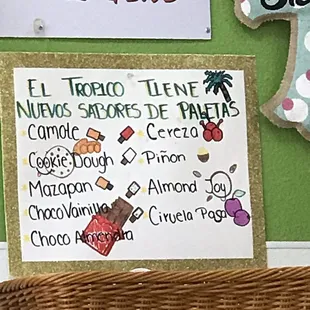 EL TROPICO TIENE
NUEVOS SABORES DE PALETAS
Camote
Cookie Dough
Mazapan
Choco Vainilla
Choco Almendra
Cereza
Piñon
Almond Joy
Ciruela Pasa